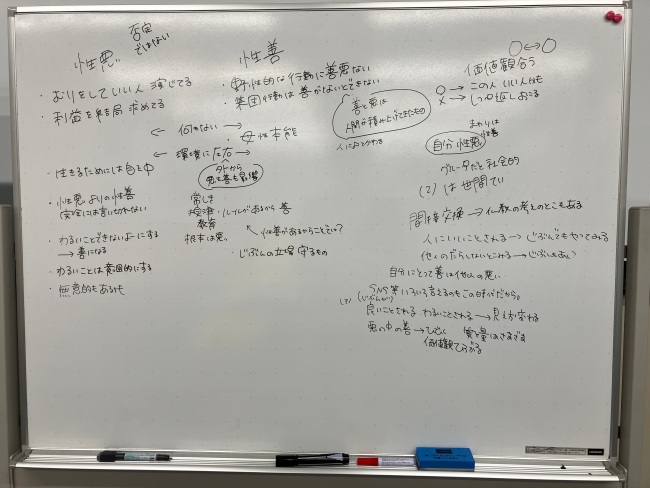 性悪
否定
ではない
・むりをしていい人 演じてる
・利益を結局 求めてる
← 何かない →
← 環境に左右 →
・生きるためには自己中
・性悪よりの性善
完全には言い切れない
・わるいことできないよーにする
→ 善になる
・わるいことは意図的にする
・無意的もあるも
性善
・野性的な行動に善悪ない
・集団行動は 善がないとできない
・母性本能
外から
悪も善も影響
常しき
法律
教育
・ルールがあるから 善
根本は悪。
↖ 性善があるからことでは?
・じぶんの立場 守るもの
善と悪は
人間が積み上げてきたもの
人におそわる
○↔○
価値観合う
○ → この人 いい人かも
× → しっぺ返しおこる
まわりは
性善
自分 性悪
グループだと 社会的
(2) は 世間てい
間接交換 → 仏教の考えのとこもある
人にいいことされる → じぶんでもやってみる
他人のだらしないとこみる → じぶんもあい
自分にとって善は他人の悪い
SNS 等 いろいろ言えるのもこの時代だから。
良いことされる わるいことされる → 見え方変わる
悪の中の善 → ひびく
質と量はさまざま
価値観でぶつかる